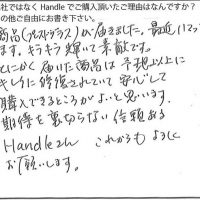 社ではなく Handle でご購入頂いたご理由はなんですか？
の他ご自由にお書き下さい。
商品(ブレストグラス)が届きました。最近ハマっ
ます。キラキラ輝いて素敵です。
とにかく届いた商品は予想以上に
キレイに修復されていて安心して
購入できるところがよいと思います。
期待を裏切らない信頼ある
Handleさん これからもよろしく
お願いします。